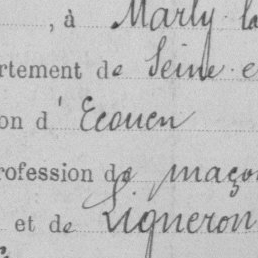 , à Marly la
rtement de Seine e
on d'Ecouen
rofession de maçon
et de Ligneron